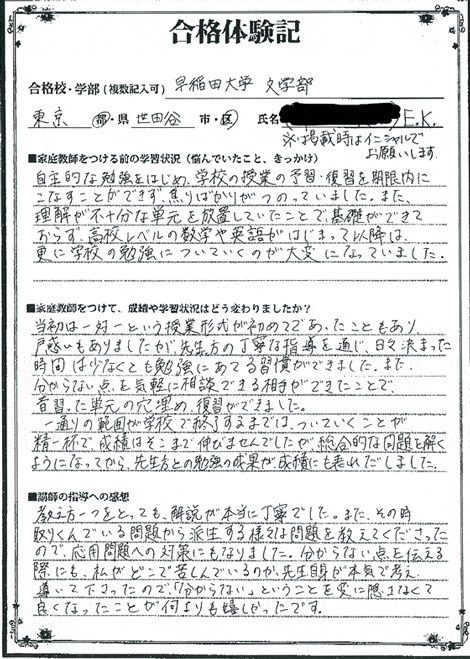 合格体験記
合格校・学部(複数記入可) 早稲田大学 文学部
東京 都・県 世田谷 市・区 氏名 E.K.
※掲載時はイニシャルで
お願いします
■家庭教師をつける前の学習状況(悩んでいたこと、きっかけ)
自主的な勉強をはじめ、学校の授業の予習・復習を期限内に
こなすことができず、焦りばかりがつのっていました。また、
理解が不十分な単元を放置していたことで、基礎ができて
おらず、高校レベルの数学や英語がはじまって以降は、
更に学校の勉強についていくのが大変になっていました。
■家庭教師をつけて、成績や学習状況はどう変わりましたか?
当初は一対一という授業形式が初めてであったこともあり
戸惑いもありましたが、先生方の丁寧な指導を通じ、日々決まった
時間は少なくとも勉強にあてる習慣ができました。また、
分からない点を気軽に相談できる相手ができたことで、
昔習った単元の穴埋め、復習ができました。
一通りの範囲が学校で終了するまでは、ついていくことが
精一杯で、成績はそこまで伸びませんでしたが、総合的な問題を解く
ようになってから、先生方との勉強の成果が、成績にも表れだしました。
■講師の指導への感想
教え方一つをとっても、解説が本当に丁寧でした。また、その時
取りくんでいる問題から派生する様々な問題を教えてくださった
ので、応用問題への対策にもなりました。分からない点を伝える
際にも、私がどこで苦しんでいるのか、先生自身が本気で考え、
導いて下さったので、「分からない」ということを変に隠さなくて
良くなったことが何よりも嬉しかったです。